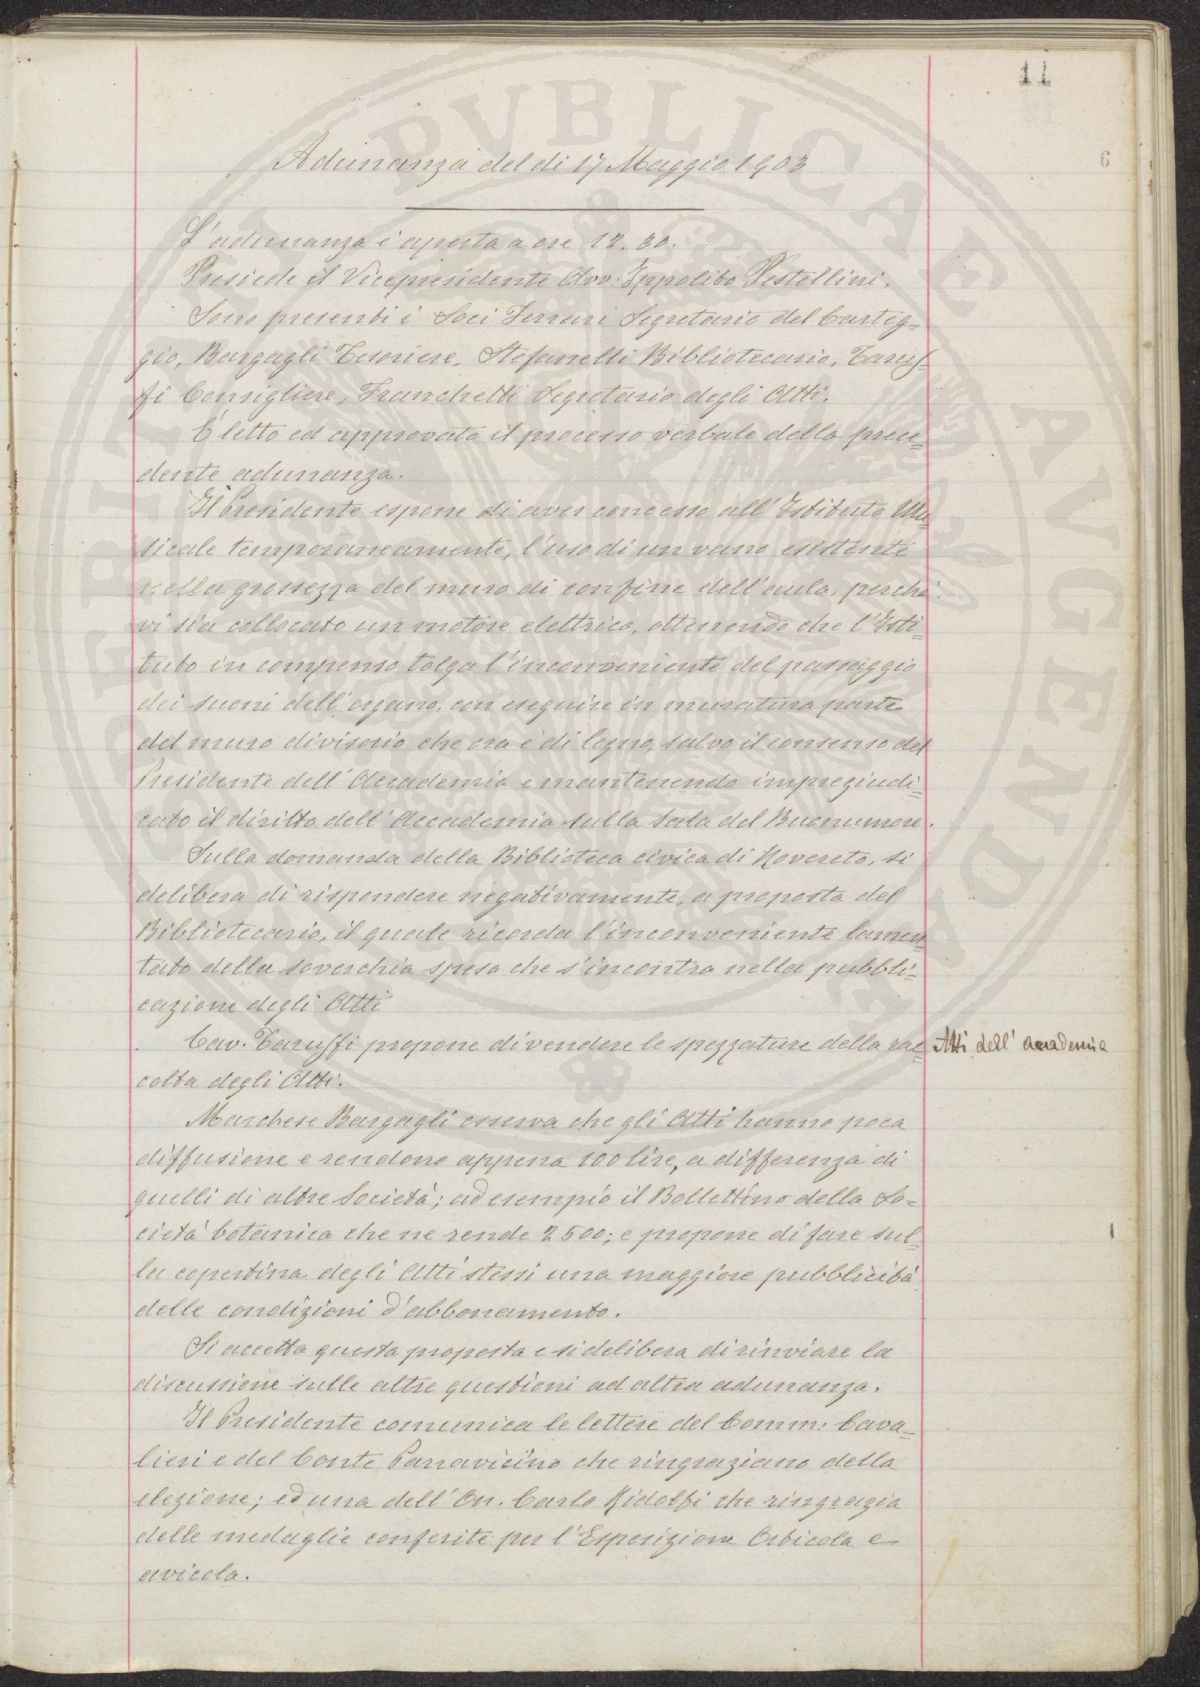 11
6
Adunanza del di 17 Maggio 1903
L'adunanza è aperta a ore 12.30.
Presiede il Vicepresidente Avv. Ippolito Pestellini.
Sono presenti i Soci Ferrari Segretario del Carteg=
gio, Bargagli Tesoriere, Stefanelli Bibliotecario, Taruf=
fi Consigliere, Franchetti Segretario degli Atti.
È letto ed approvato il processo verbale della prece=
dente adunanza.
Il Presidente espone di aver concesso all'Istituto Mu=
sicale temporaneamente, l'uso di un vano esistente
nella grossezza del muro di confine dell'aula, perchè
vi sia collocato un motore elettrico, ottenendo che l'Isti=
tuto in compenso tolga l'inconveniente del passaggio
dei suoni dell'organo, con eseguire in muratura parte
del muro divisorio che ora è di legno, salvo il consenso del
Presidente dell'Accademia e mantenendo impregiudi=
cato il diritto dell'Accademia sulla Sala del Buonumore.
Sulla domanda della Biblioteca civica di Rovereto, si
delibera di rispondere negativamente, a proposta del
Bibliotecario, il quale ricorda l'inconveniente lamen=
tato della soverchia spesa che s'incontra nella pubbli=
cazione degli Atti
Cav. Taruffi propone di vendere le spezzature della rac=
colta degli Atti.
Atti dell'accademia
Marchese Bargagli osserva che gli Atti hanno poca
diffusione e rendono appena 100 lire, a differenza di
quelli di altre Società; ad esempio il Bollettino della So=
cietà botanica che ne rende 2500; e propone di fare sul=
la copertina degli Atti stessi una maggiore pubblicità
delle condizioni d'abbonamento.
Si accetta questa proposta e si delibera di rinviare la
discussione sulle altre questioni ad altra adunanza.
Il Presidente comunica le lettere del Comm: Cava=
lieri e del Conte Parravicino che ringraziano della
elezione; ed una dell'On. Carlo Ridolfi che ringrazia
delle medaglie conferite per l'Esposizione Orticola e
avicola.